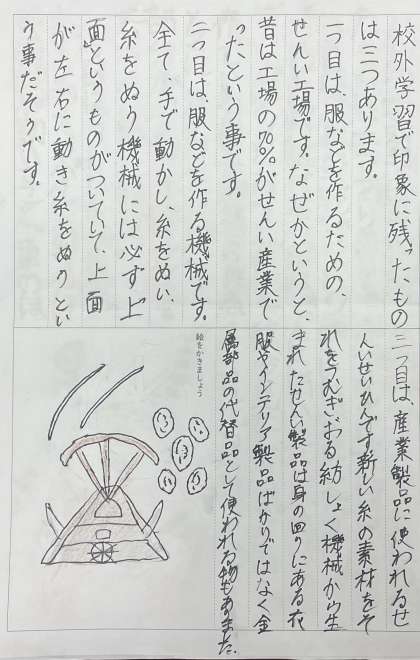 校外学習で印象に残ったもの
は三つあります。
一つ目は、服などを作るための、
せんい工場です。なぜかというと、
昔は工場の70%がせんい産業で
ったという事です。
二つ目は、服などを作る機械です。
全て、手で動かし、糸をぬい、
糸をぬう機械には必ず上
面というものがついていて、上面
が左右に動き糸をぬうとい
う事だそうです。
三つ目は、産業製品に使われるせ
んいせいひんです新しい糸の素材をそ
れをつむぎおる紡しょく機械から生
まれたせんい製品は身の回りにある衣
服やインテリア製品ばかりではなく金
属部品の代替品として使われる物もありました。
絵をかきましょう